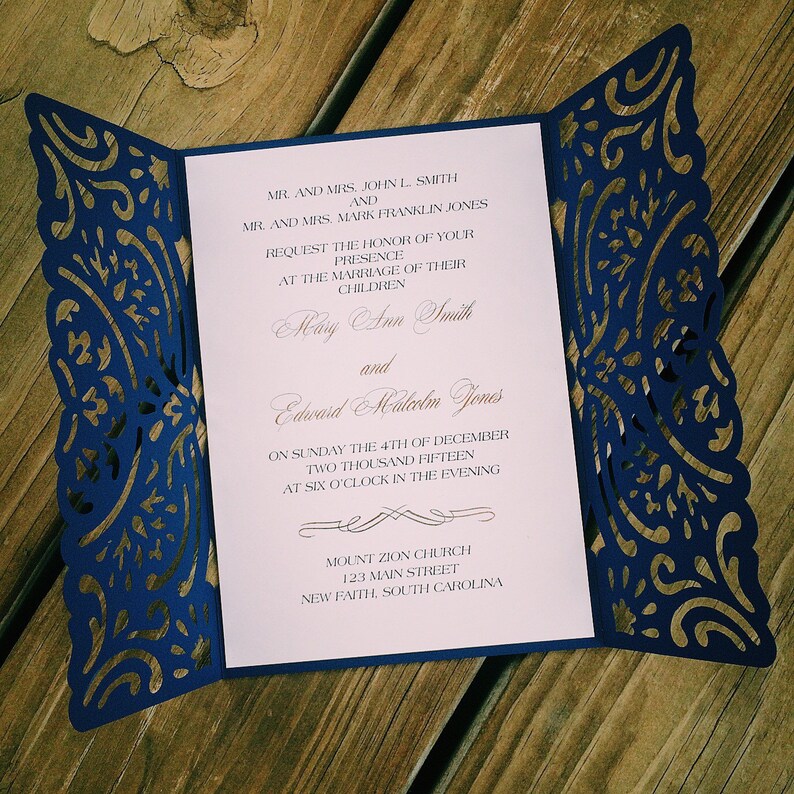 MR. AND MRS. JOHN L. SMITH
AND
MR. AND MRS. MARK FRANKLIN JONES
REQUEST THE HONOR OF YOUR
PRESENCE
AT THE MARRIAGE OF THEIR
CHILDREN
Mary Ann Smith
and
Edward Malcolm Jones
ON SUNDAY THE 4TH OF DECEMBER
TWO THOUSAND FIFTEEN
AT SIX O'CLOCK IN THE EVENING
MOUNT ZION CHURCH
123 MAIN STREET
NEW FAITH, SOUTH CAROLINA